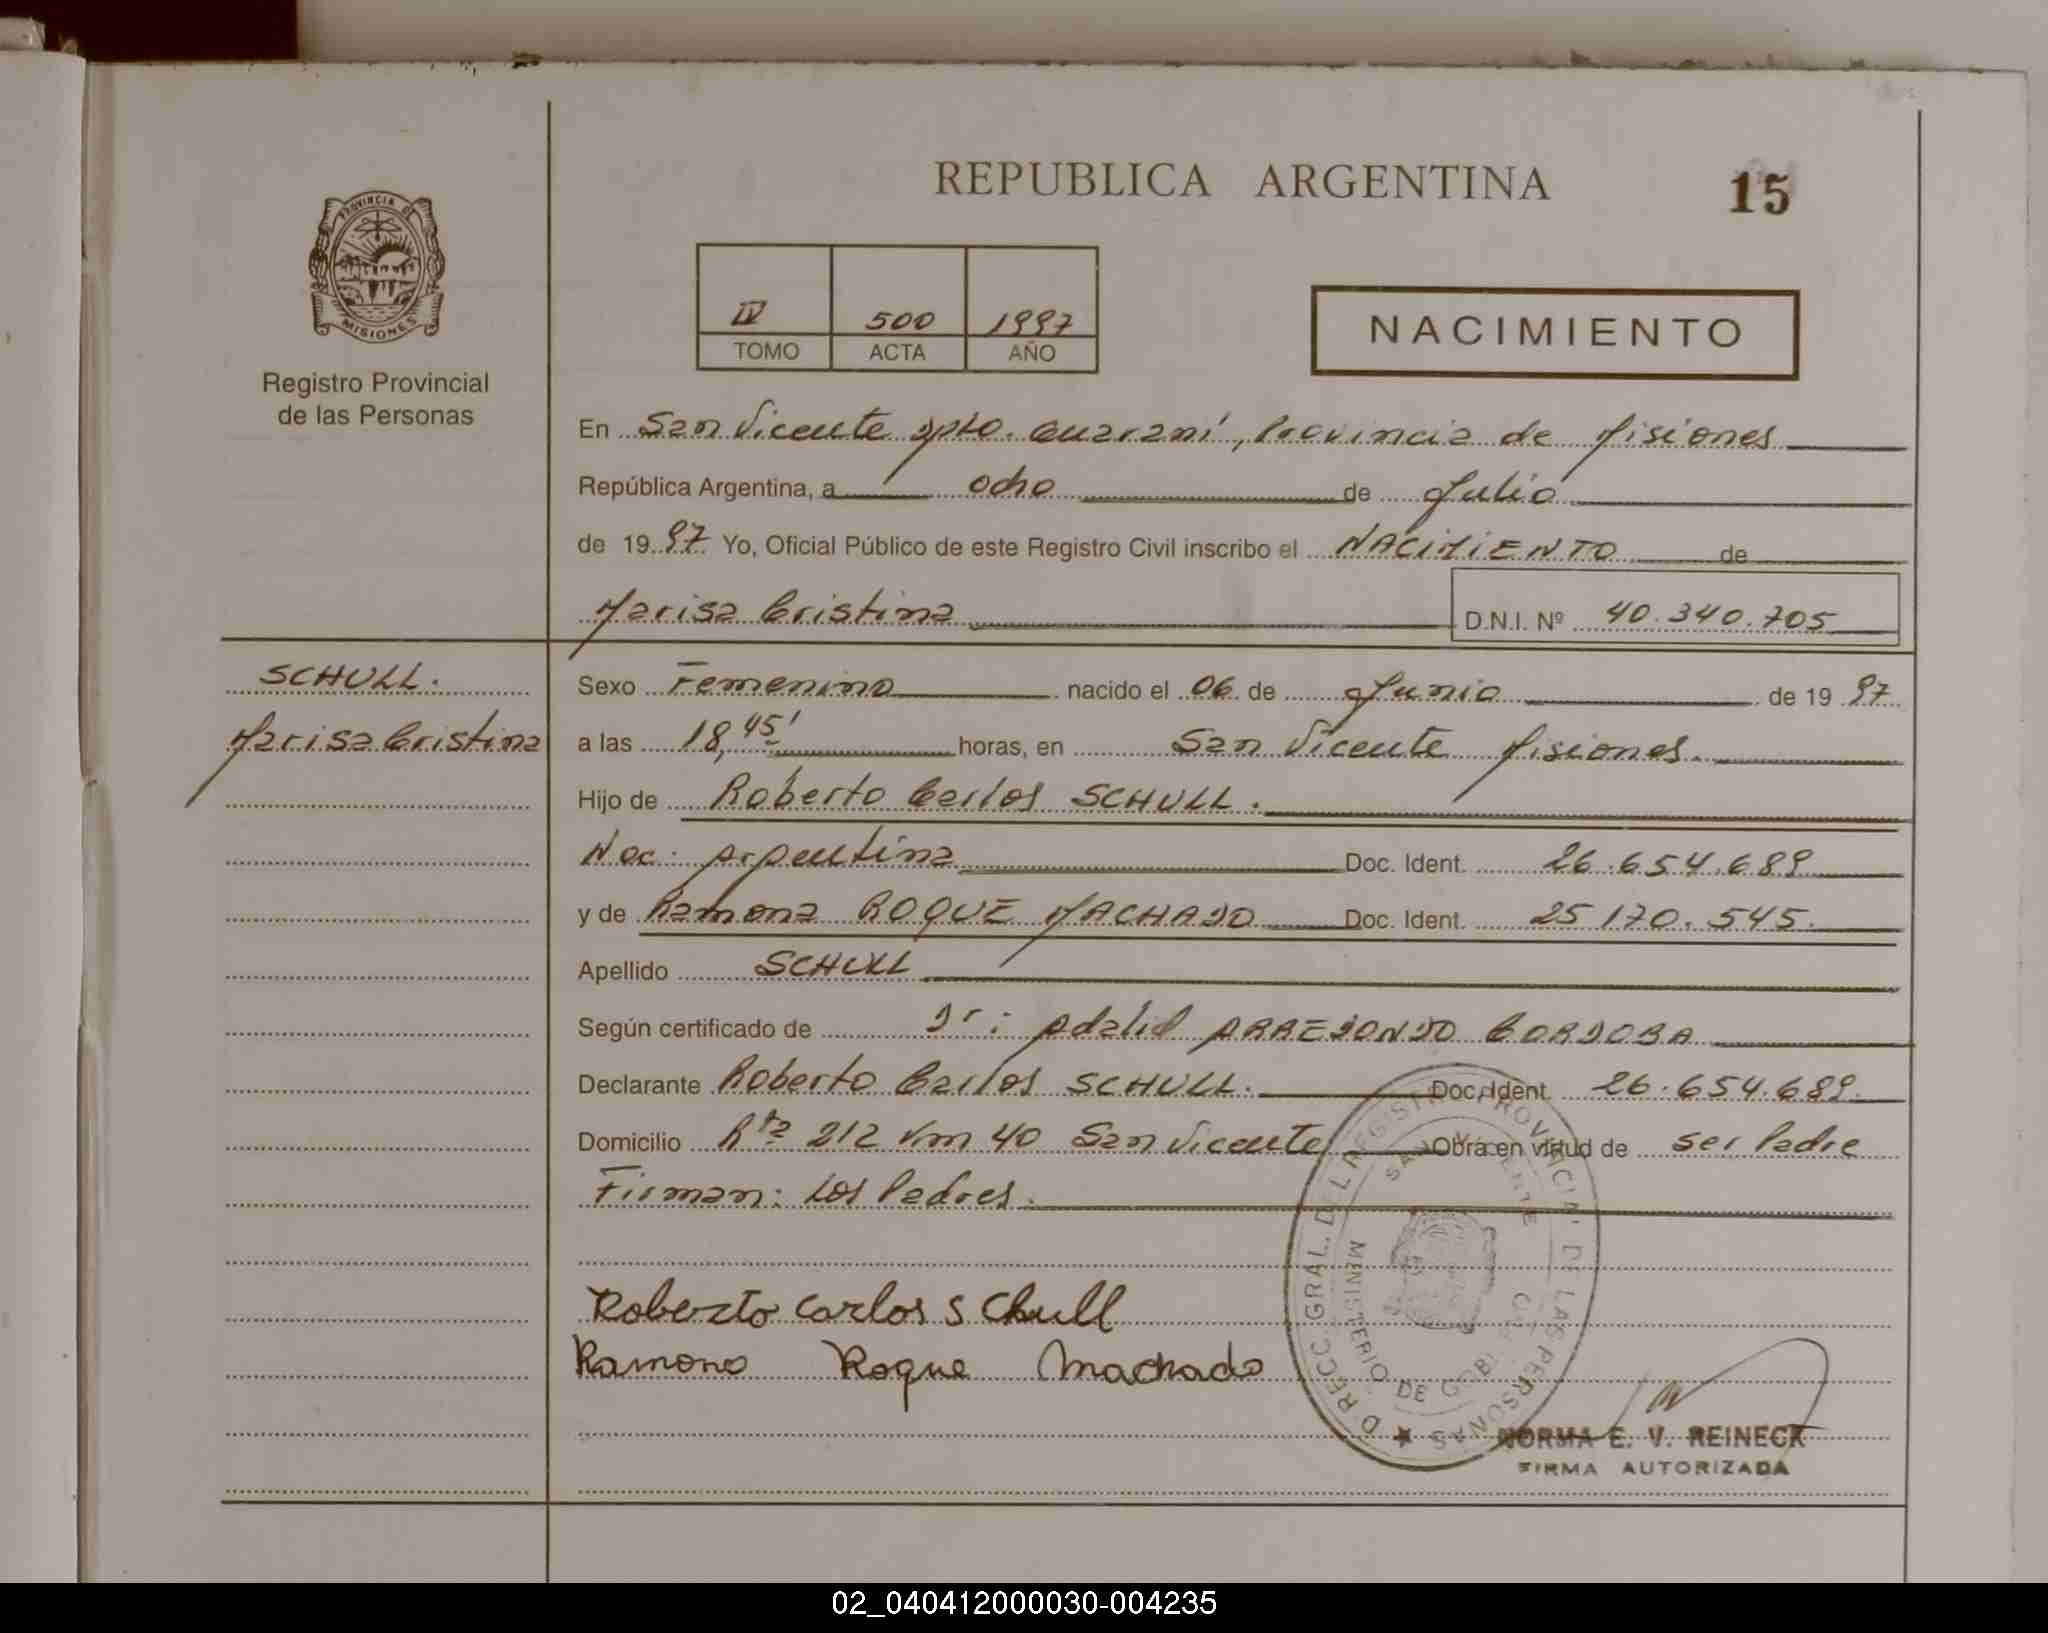 REPUBLICA ARGENTINA
15
PROVINCIA DE
MISIONES
Registro Provincial
de las Personas
IV 500 1997
TOMO ACTA AÑO
NACIMIENTO
En San Vicente Dpto. Guaraní, Provincia de Misiones
República Argentina, a ocho de Julio
de 1997 Yo, Oficial Público de este Registro Civil inscribo el NACIMIENTO de
Marisa Cristina D.N.I. Nº 40.340.705
SCHULL.
Marisa Cristina
Sexo Femenino nacido el 06 de Junio de 1997
a las 18,45' horas, en San Vicente Misiones.
Hijo de Roberto Carlos SCHULL.
Nac. Argentina Doc. Ident. 26.654.689
y de Ramona ROQUE MACHADO Doc. Ident. 25 170.545.
Apellido SCHULL
Según certificado de Dr: Adalid ARREDONDO CORDOBA
Declarante Roberto Carlos SCHULL. Doc. Ident. 26.654.689.
Domicilio Rta 212 Km 40 San Vicente Obra en virtud de ser Padre
Firman: Los Padres.
Roberto Carlos Schull
Ramona Roque Machado
DIRECC. GRAL. DEL REGISTRO PROVINCIAL DE LAS PERSONAS
SAN VICENTE
MINISTERIO DE GOBI
NORMA E. V. REINECK
FIRMA AUTORIZADA
02_040412000030-004235